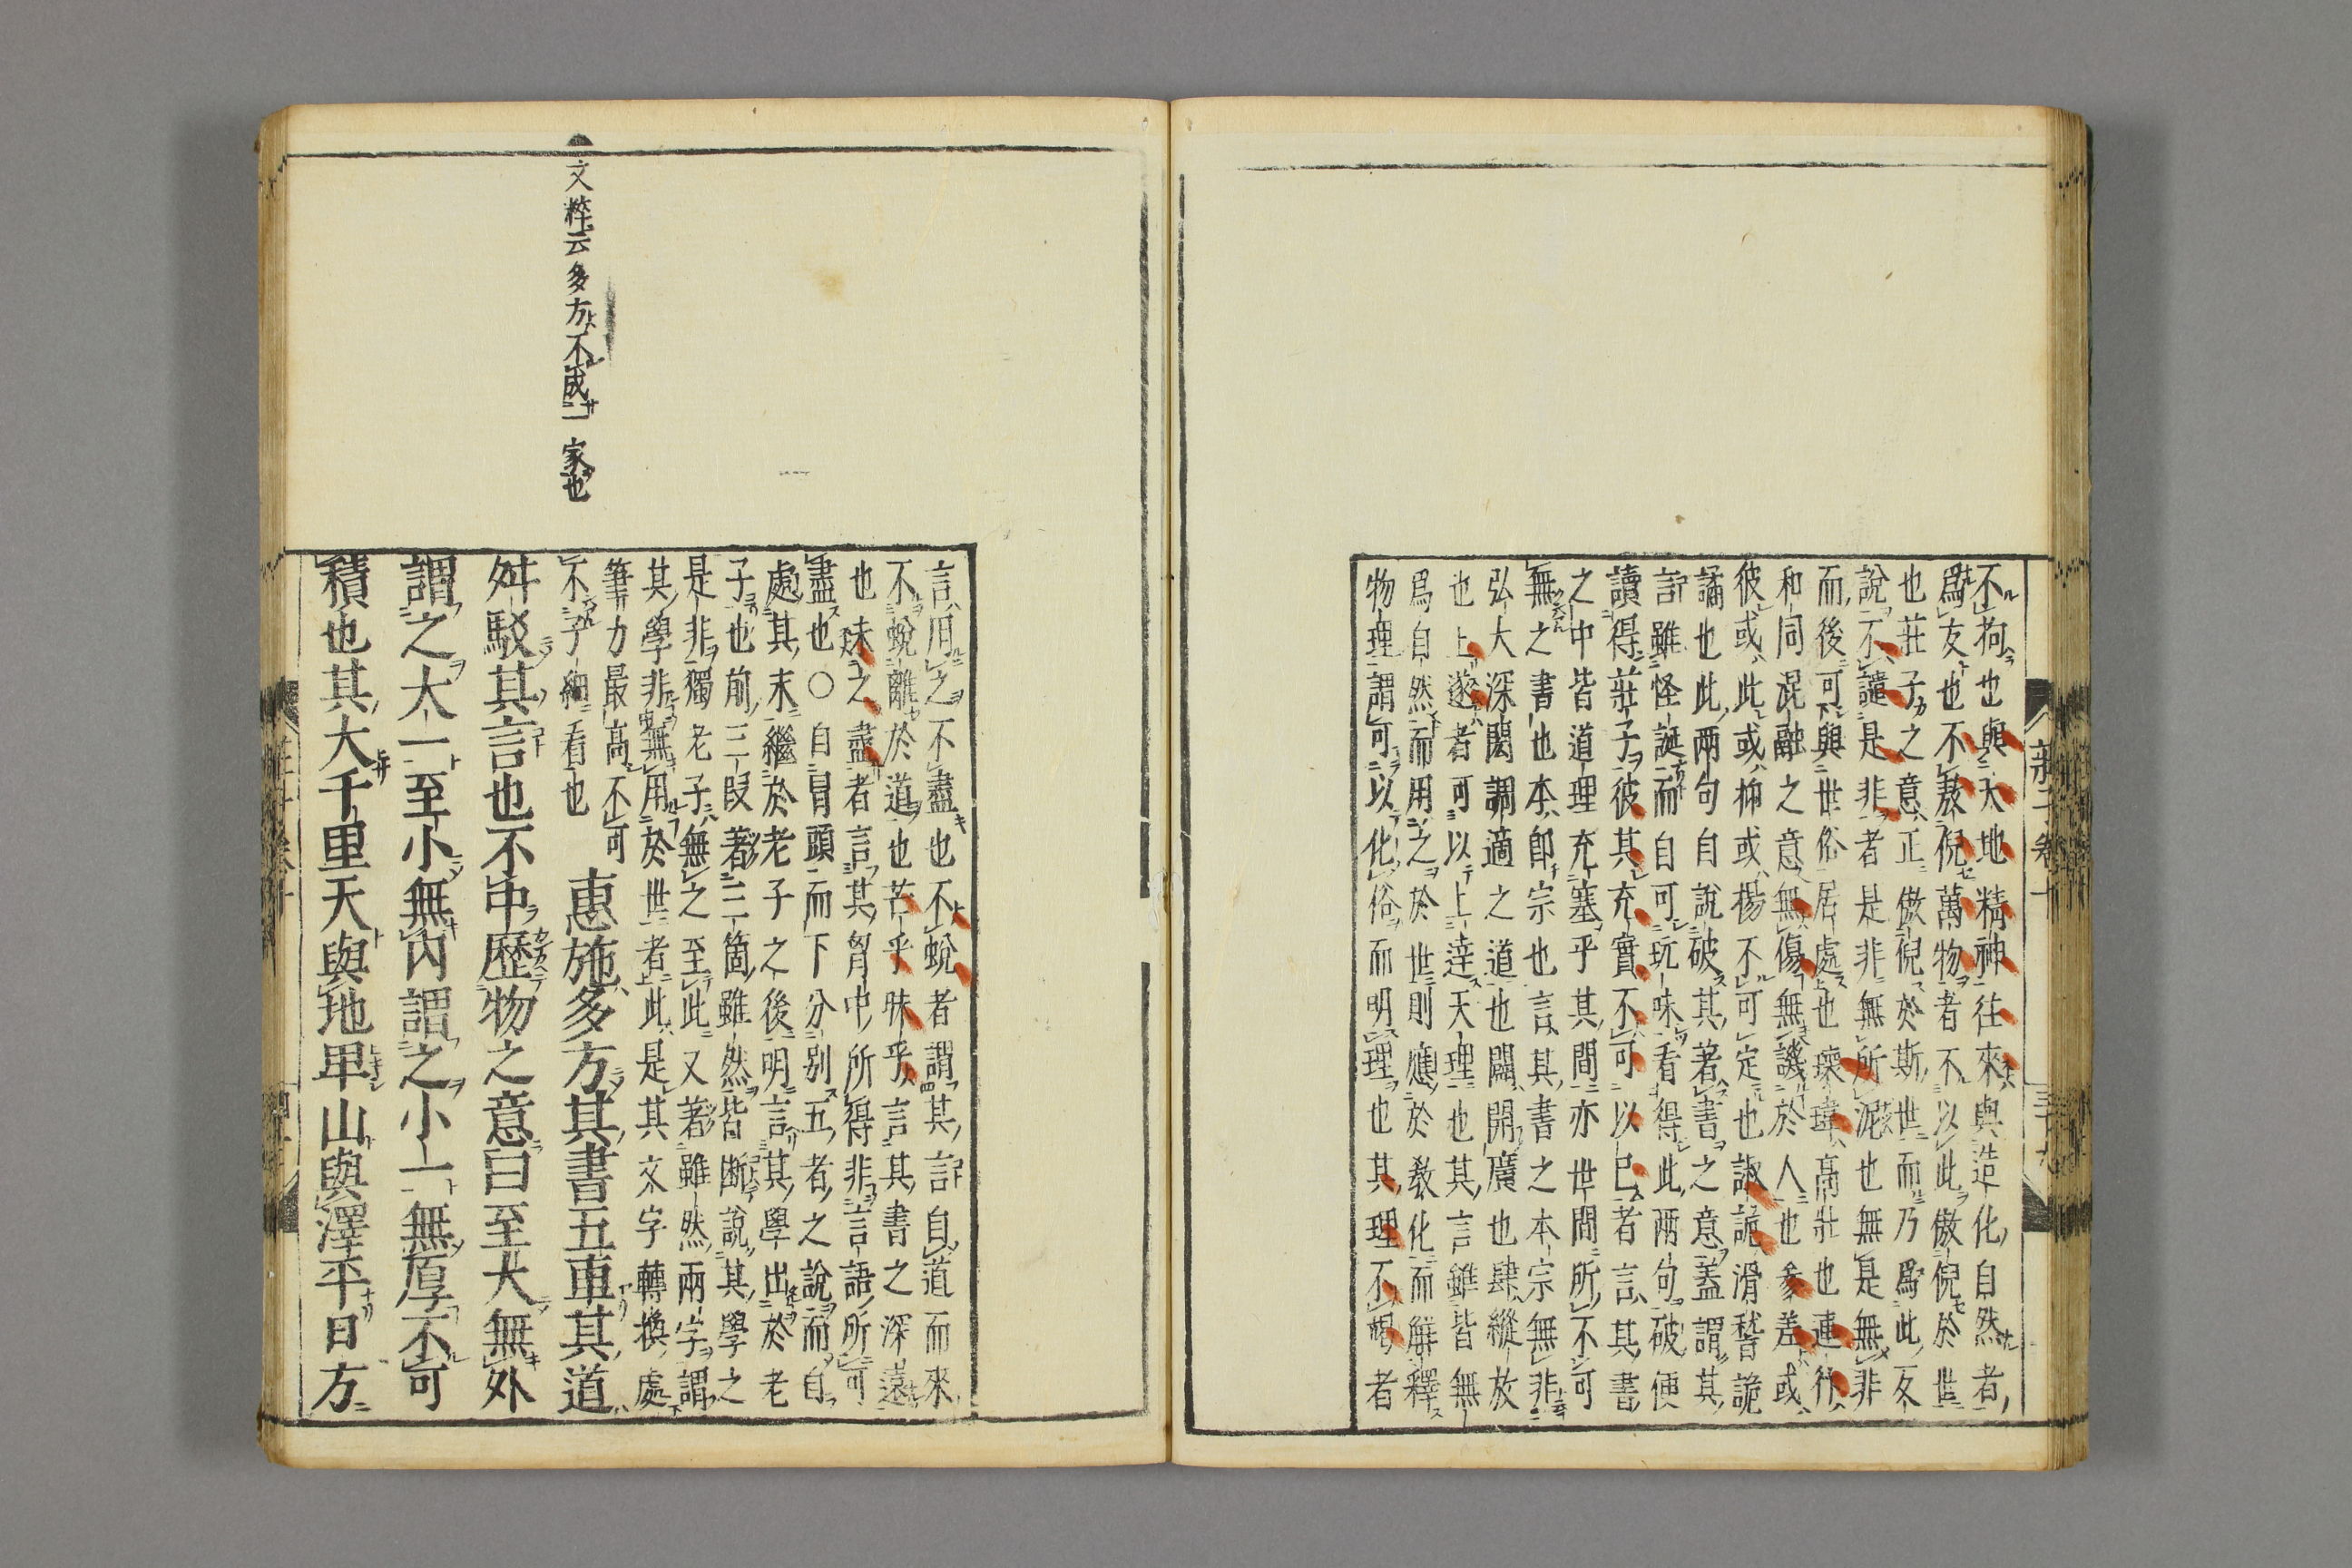 不拘也與天地精神往來與造化自然者
爲友也不敖倪萬物者不以此傲倪於世
也莊子之意正傲倪於斯世而乃爲此友
說不譴是非者是非無所泥也無是無非
而後可與世俗居處也瓌瑋高壯也連犿
和同混融之意無傷無譏於人也參差或
彼或此或抑或揚不可定也諔詭滑稽詭
譎也此兩句自說破其著書之意蓋謂其
言雖怪誕而自可玩味看得此兩句破便
讀得莊子彼其充實不可以已者言其書
之中皆道理充塞乎其間亦世間所不可
無之書也本卽宗也言其書之本宗無非
弘大深閎調適之道也闢開廣也肆縱放
也上遂者可以上達天理也其言雖皆無
爲自然而用之於世則應於教化而解釋
物理謂可以化俗而明理也其理不竭者
莊子卷十
三十九
言用之不盡也不蛻者謂其言自道而來
不蛻離於道也芒乎昧乎言其書之深遠
也未之盡者言其胷中所得非言語所可
盡也○自冒頭而下分别五者之說而自
處其末繼於老子之後明言其學出於老
子也前三段著三箇雖然皆斷說其學之
是非獨老子無之至此又著雖然兩字謂
其學非無用於世者此是其文字轉換處
筆力最高不可
不子細看也
惠施多方其書五車其道
舛駁其言也不中歷物之意曰至大無外
謂之大一至小無內謂之小一無厚不可
積也其大千里天與地卑山與澤平日方
文粹云多方不成一家也